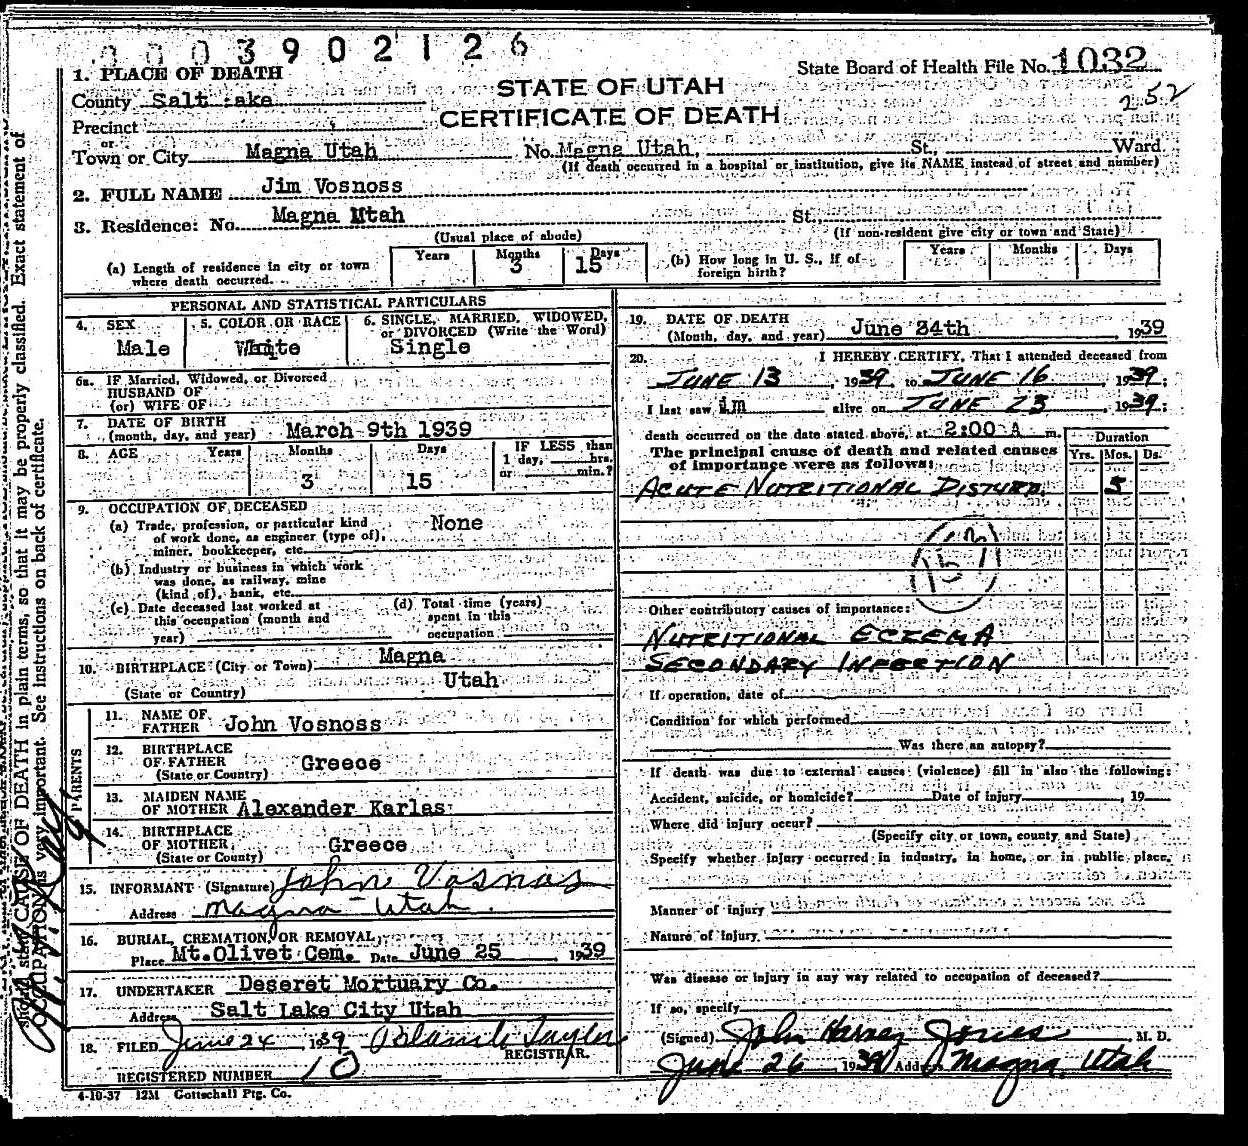 0003902126
State Board of Health File No. 1032
252
STATE OF UTAH
CERTIFICATE OF DEATH
1. PLACE OF DEATH
County Salt Lake
Precinct
or
Town or City Magna Utah No. Magna Utah, St., Ward
(If death occurred in a hospital or institution, give its NAME instead of street and number)
2. FULL NAME Jim Vosnoss
3. Residence: No. Magna Utah St.,
(Usual place of abode) (If non-resident give city or town and State)
(a) Length of residence in city or town where death occurred. Years Months 3 Days 15
(b) How long in U. S., if of foreign birth? Years Months Days
PERSONAL AND STATISTICAL PARTICULARS
4. SEX Male
5. COLOR OR RACE White
6. SINGLE, MARRIED, WIDOWED, or DIVORCED (Write the Word) Single
6a. IF Married, Widowed, or Divorced
HUSBAND OF
(or) WIFE OF
7. DATE OF BIRTH
(month, day, and year) March 9th 1939
8. AGE Years Months 3 Days 15 IF LESS than 1 day, hrs. or min.?
9. OCCUPATION OF DECEASED
(a) Trade, profession, or particular kind of work done, as engineer (type of), miner, bookkeeper, etc. None
(b) Industry or business in which work was done, as railway, mine (kind of), bank, etc.
(c) Date deceased last worked at this occupation (month and year)
(d) Total time (years) spent in this occupation
10. BIRTHPLACE (City or Town) Magna
(State or Country) Utah
PARENTS
11. NAME OF FATHER John Vosnoss
12. BIRTHPLACE OF FATHER (State or Country) Greece
13. MAIDEN NAME OF MOTHER Alexander Karlas
14. BIRTHPLACE OF MOTHER (State or County) Greece
15. INFORMANT (Signature) John Vosnos
Address Magna Utah.
16. BURIAL, CREMATION, OR REMOVAL
Place Mt.Olivet Cem. Date June 25, 1939
17. UNDERTAKER Deseret Mortuary Co.
Address Salt Lake City Utah
18. FILED June 24 1939
REGISTRAR.
REGISTERED NUMBER 10
4-10-37 12M Gottschall Ptg. Co.
19. DATE OF DEATH
(Month, day, and year) June 24th 1939
20. I HEREBY CERTIFY, That I attended deceased from
JUNE 13, 1939, to JUNE 16, 1939;
I last saw im alive on JUNE 23, 1939;
death occurred on the date stated above, at 2:00 A m.
Duration
Yrs. Mos. Ds.
The principal cause of death and related causes of importance were as follows:
ACUTE NUTRITIONAL DISTURB.
Other contributory causes of importance:
NUTRITIONAL ECZEMA
SECONDARY INFECTION
If operation, date of
Condition for which performed
Was there an autopsy?
If death was due to external causes (violence) fill in also the following:
Accident, suicide, or homicide? Date of injury , 19
Where did injury occur?
(Specify city or town, county and State)
Specify whether injury occurred in industry, in home, or in public place,
Manner of injury
Nature of injury
Was disease or injury in any way related to occupation of deceased?
If so, specify
(Signed) John Harvey Jones M. D.
June 26, 1939 Add. Magna, Utah
state CAUSE OF DEATH in plain terms, so that it may be properly classified. Exact statement of
OCCUPATION is very important. See instructions on back of certificate.